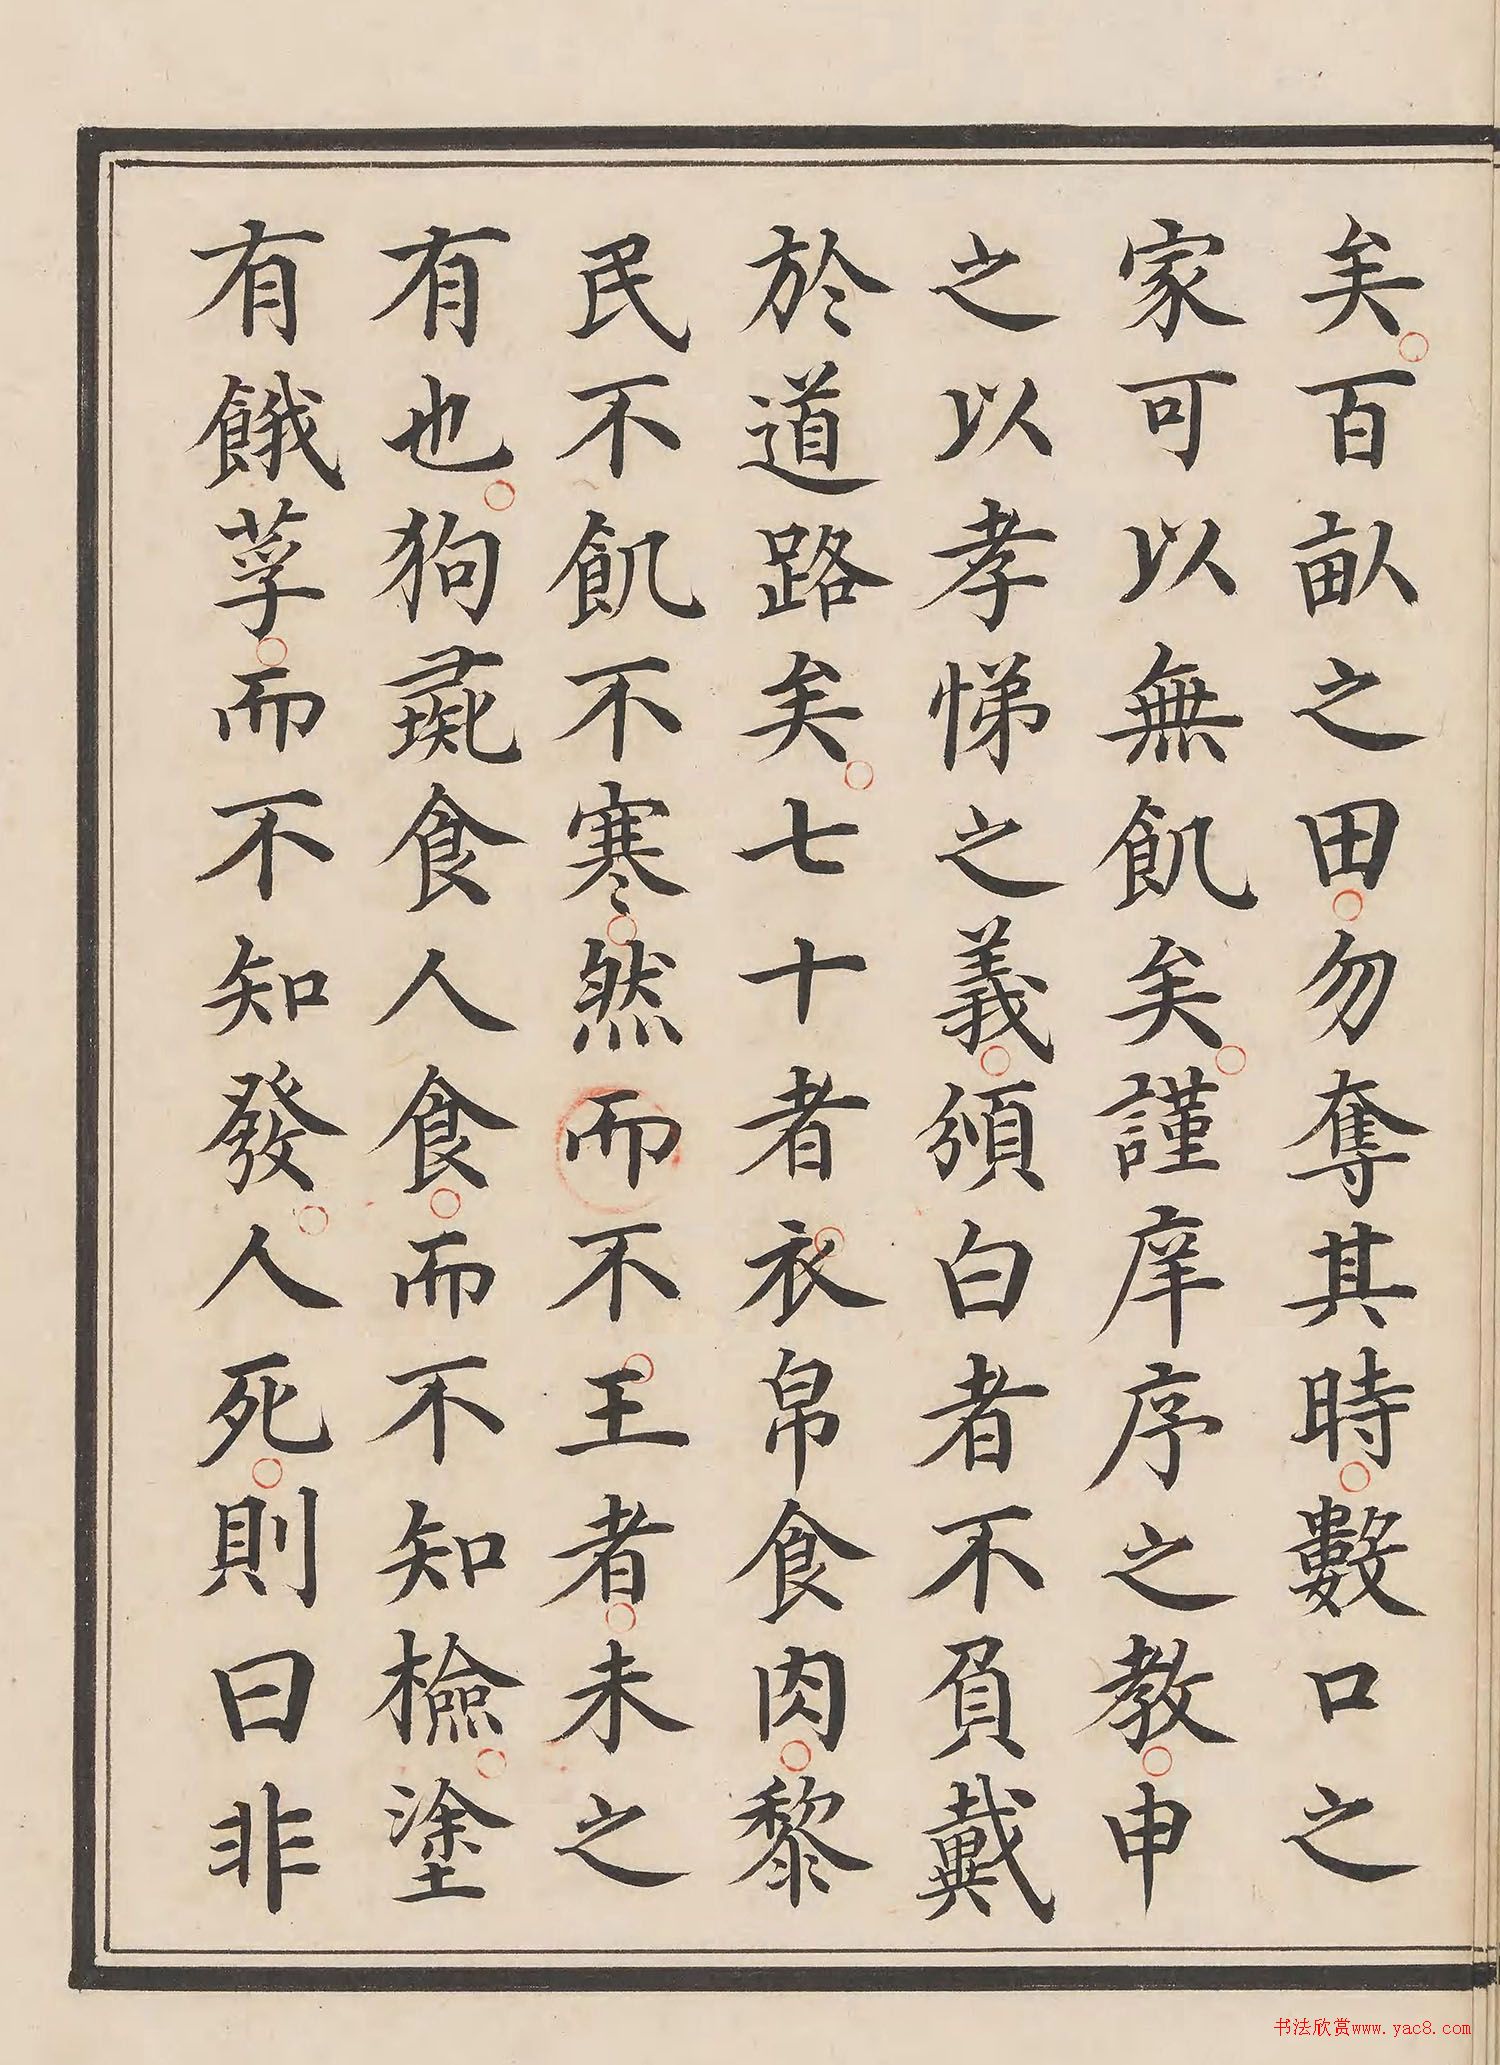 矣百畝之田勿奪其時數口之
家可以無飢矣謹庠序之教申
之以孝悌之義頒白者不負戴
於道路矣七十者衣帛食肉黎
民不飢不寒然而不王者未之
有也狗彘食人食而不知檢塗
有餓莩而不知發人死則曰非
书法欣赏www.yac8.com